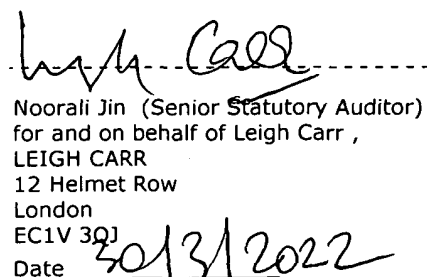 Leigh Carr
Noorali Jin (Senior Statutory Auditor)
for and on behalf of Leigh Carr ,
LEIGH CARR
12 Helmet Row
London
EC1V 3QJ
Date 30/3/2022